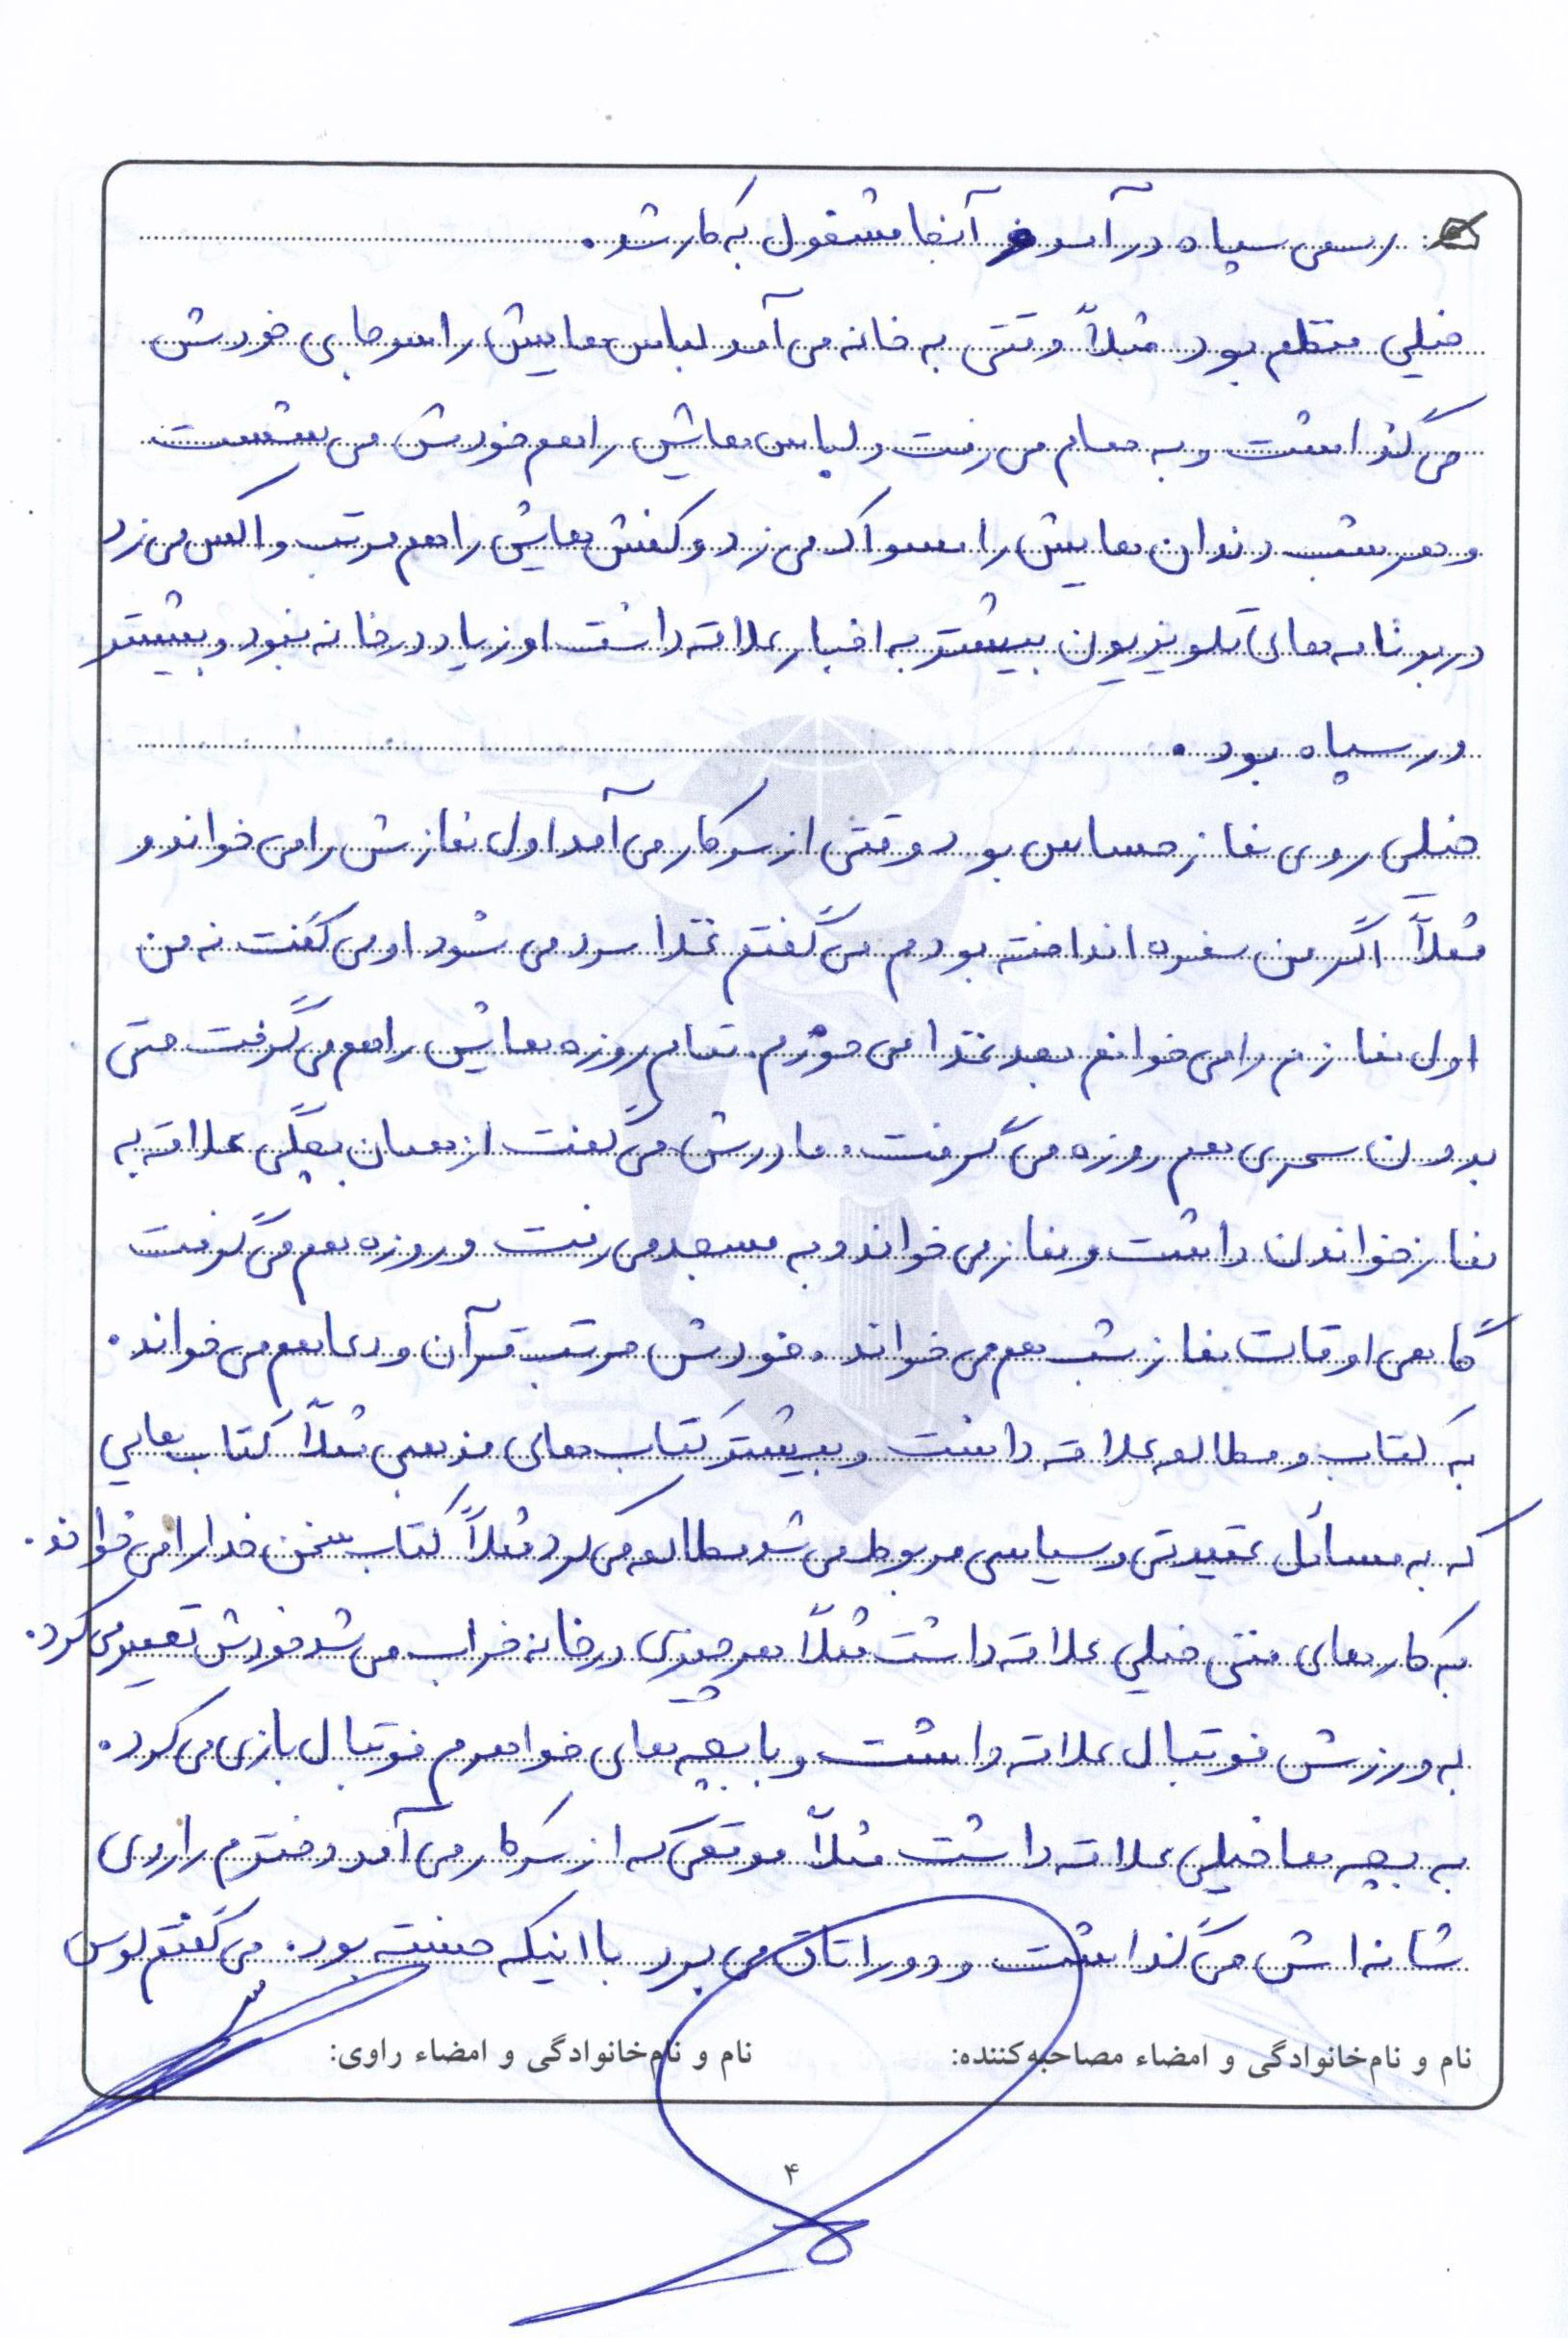 رسمی سپاه در آمد و آنجا مشغول به کار شد.
خیلی منظم بود مثلاً وقتی به خانه می آمد لباس هایش را سر جای خودش
می گذاشت و به حمام می رفت و لباس هایش را هم خودش می شست
و هر شب دندان هایش را مسواک می زد و کفش هایش را هم مرتب واکس می زد
در برنامه های تلویزیون بیشتر به اخبار علاقه داشت او زیاد در خانه نبود و بیشتر
در سپاه بود.
خیلی روی نماز حساس بود وقتی از سر کار می آمد اول نمازش را می خواند و
مثلاً اگر من سفره انداخته بودم می گفتم غذا سرد می شود او می گفت نه من
اول نمازم را می خوانم بعد غذا می خورم. تمام روزه هایش را هم می گرفت حتی
بدون سحری هم روزه می گرفت. مادرش می گفت از همان بچگی علاقه به
نماز خواندن داشت و نماز می خواند و به مسجد می رفت و روزه هم می گرفت
گاهی اوقات نماز شب هم می خواند. خودش مرتب قرآن و دعا هم می خواند.
به کتاب و مطالعه علاقه داشت و بیشتر کتاب های مذهبی مثلاً کتاب هایی
که به مسائل عقیدتی و سیاسی مربوط می شد مطالعه می کرد مثلاً کتاب سخن خدا را می خواند.
به کارهای فنی خیلی علاقه داشت مثلاً هر چیزی در خانه خراب می شد خودش تعمیر می کرد.
به ورزش فوتبال علاقه داشت و با بچه های خواهرم فوتبال بازی می کرد.
به بچه ها خیلی علاقه داشت مثلاً موقعی که از سر کار می آمد دخترم را روی
شانه اش می گذاشت و دور اتاق می برد با اینکه خسته بود. می گفتم لوس
نام و نام‌خانوادگی و امضاء مصاحبه‌کننده: نام و نام‌خانوادگی و امضاء راوی:
۴